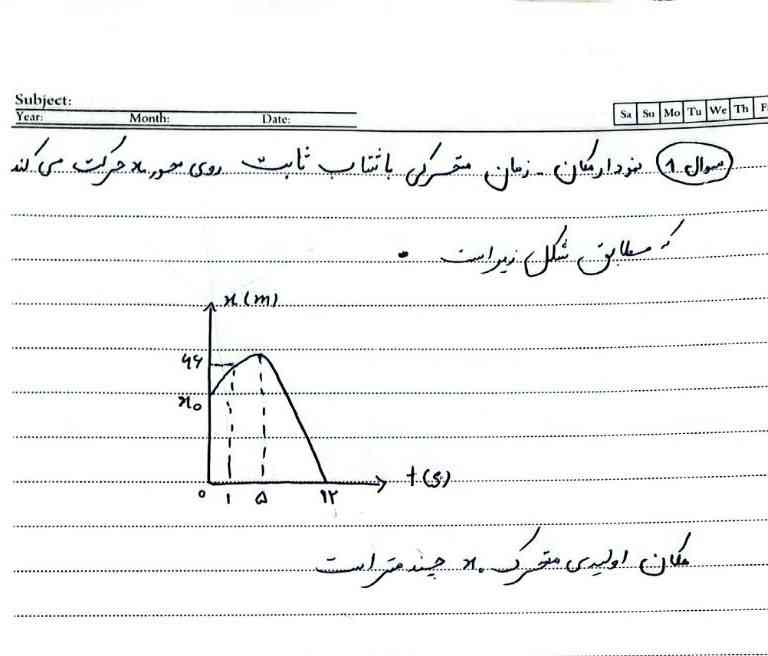 Subject:
Year: Month: Date:
Sa Su Mo Tu We Th F
سوال ۱ نمودار مکان - زمان متحرکی با شتاب ثابت روی محور x حرکت می کند
که مطابق شکل زیر است .
x (m)
۶۶
x₀
۰ ۱ ۵ ۱۲ t (s)
مکان اولیه‌ی متحرک x₀ چند متر است